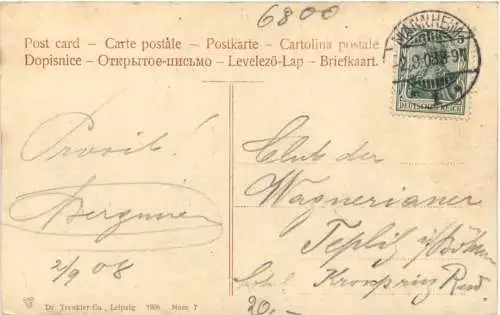 6800
Post card – Carte postale – Postkarte – Cartolina postale
Dopisnice – Открытое-письмо – Levelezö-Lap – Briefkaart.
MANNHEIM
2.9.08
DEUTSCHES REICH
Prosit!
2/9 08
Club der
Wagnerianer
Teplitz i/Böhmen
Hotel Kronprinz Rud.
20.–
Dr. Trenkler Co., Leipzig 1906 Mnm 7